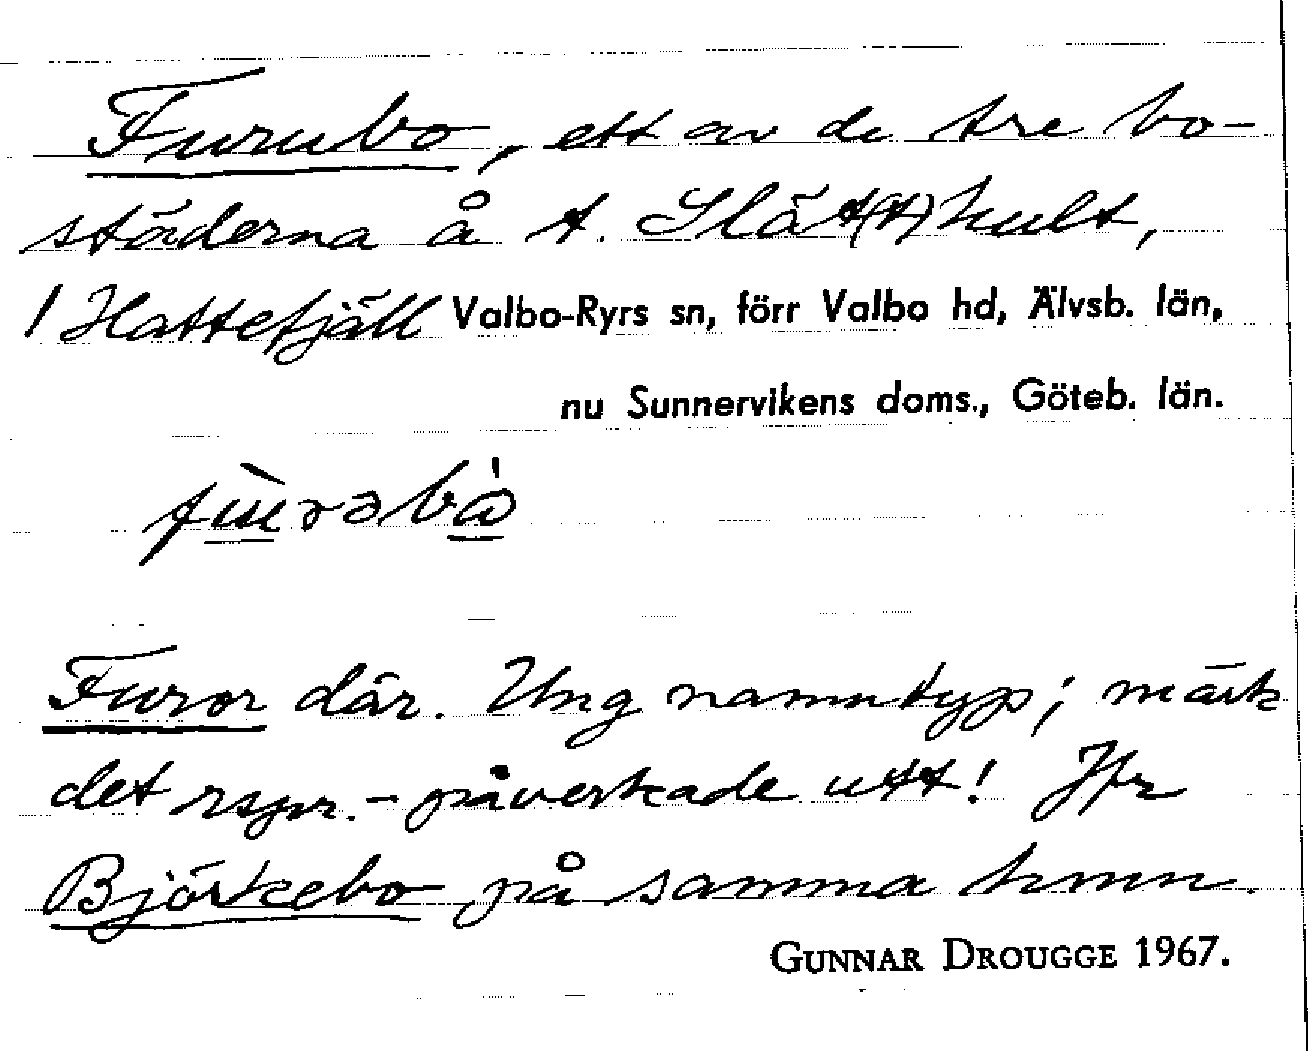 Furubo, ett av de tre bo-
städerna å t. Slät(t)hult,
1 Hattefjäll Valbo-Ryrs sn, förr Valbo hd, Älvsb. län,
nu Sunnervikens doms., Göteb. län.
Furor där. Ung namntyp; märk
det rspr.-påverkade utt! Jfr
Björkebo på samma hmn.
GUNNAR DROUGGE 1967.